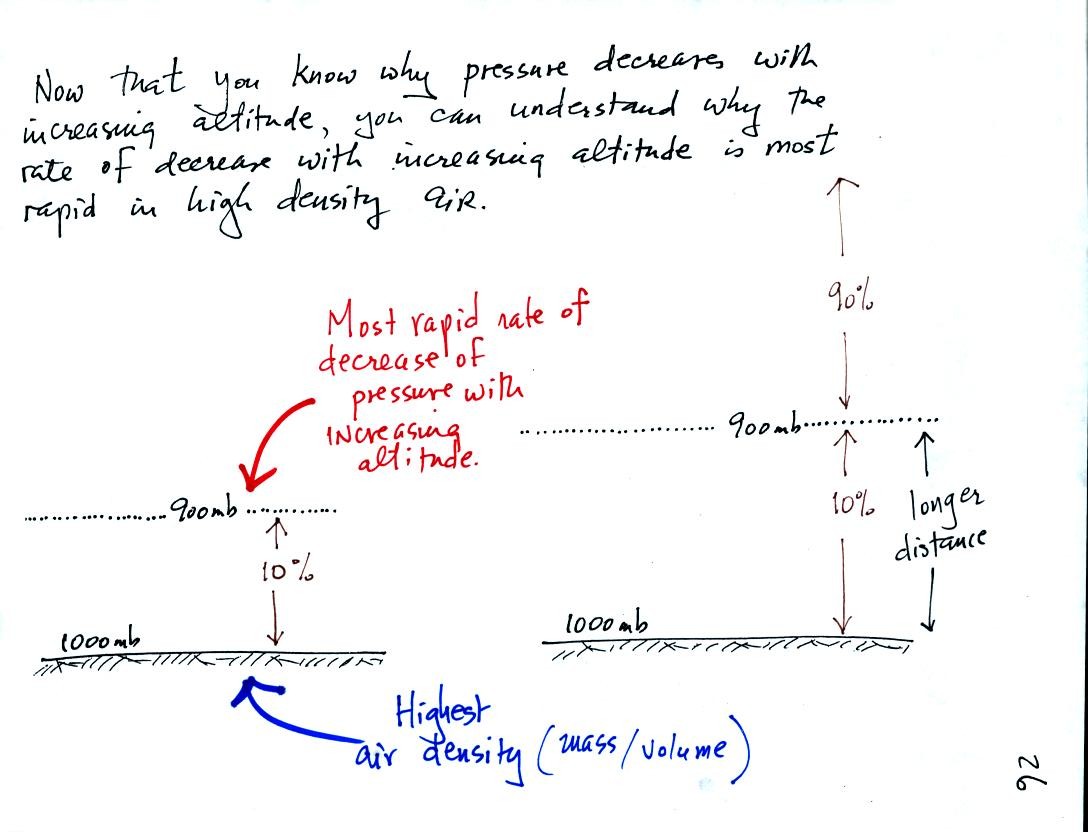 Now that you know why pressure decreases with
increasing altitude, you can understand why the
rate of decrease with increasing altitude is most
rapid in high density air.
90%
Most rapid rate of
decrease of
pressure with
increasing
altitude.
900mb
900mb
10%
longer
distance
10%
1000mb
1000mb
Highest
air density (mass/volume)
26